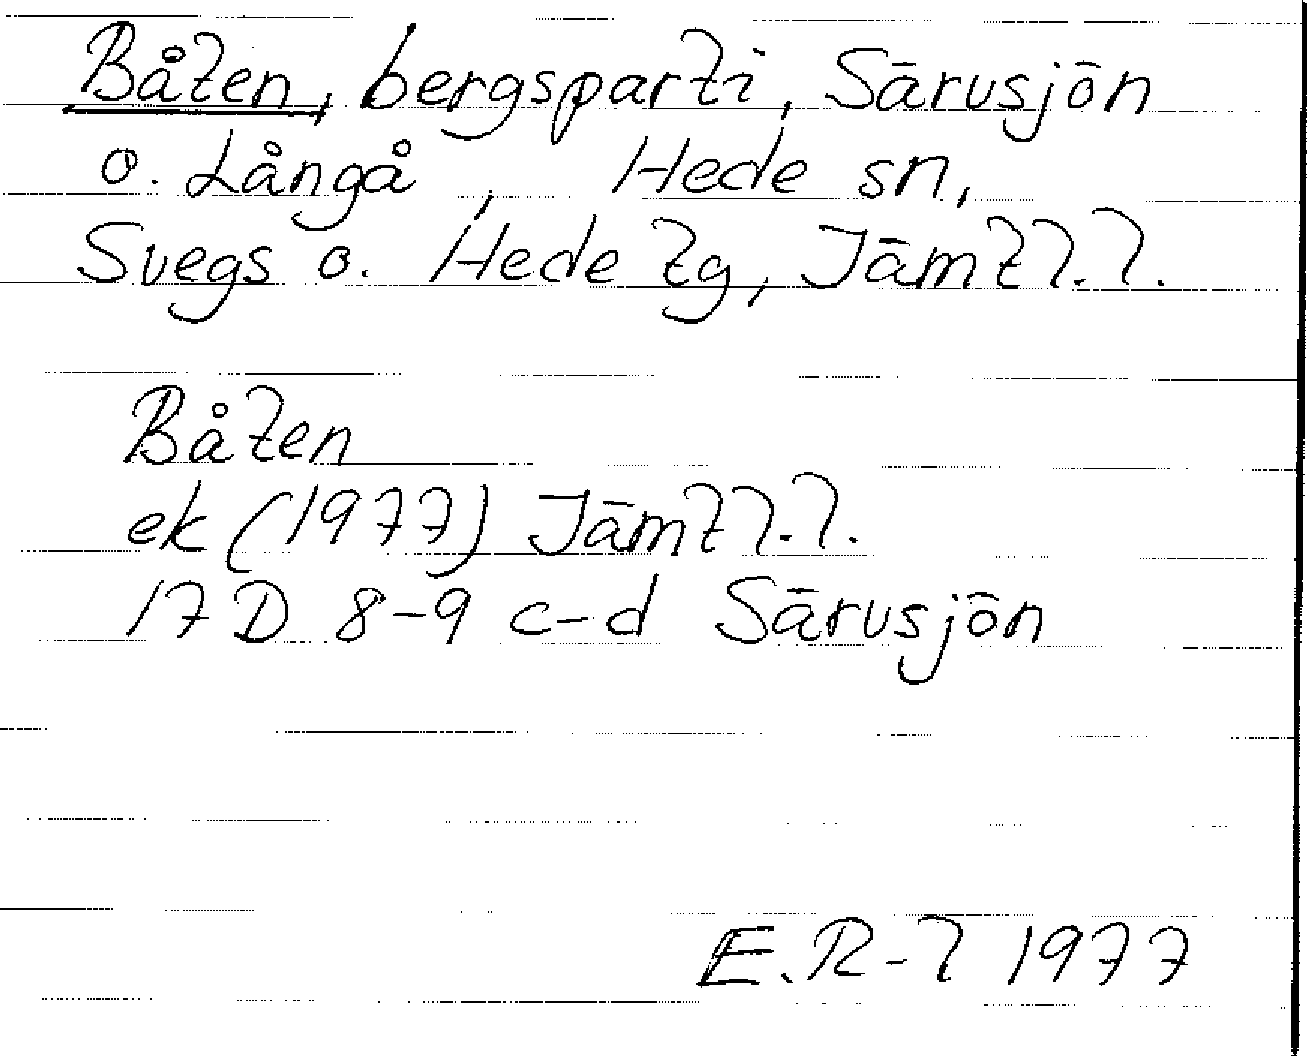 Båten, bergsparti, Särusjön
o. Långå, Hede sn,
Svegs o. Hede tg, Jämtl.l.
Båten
ek (1977) Jämtl.l.
17 D 8-9 c-d Särusjön
E.R-l 1977